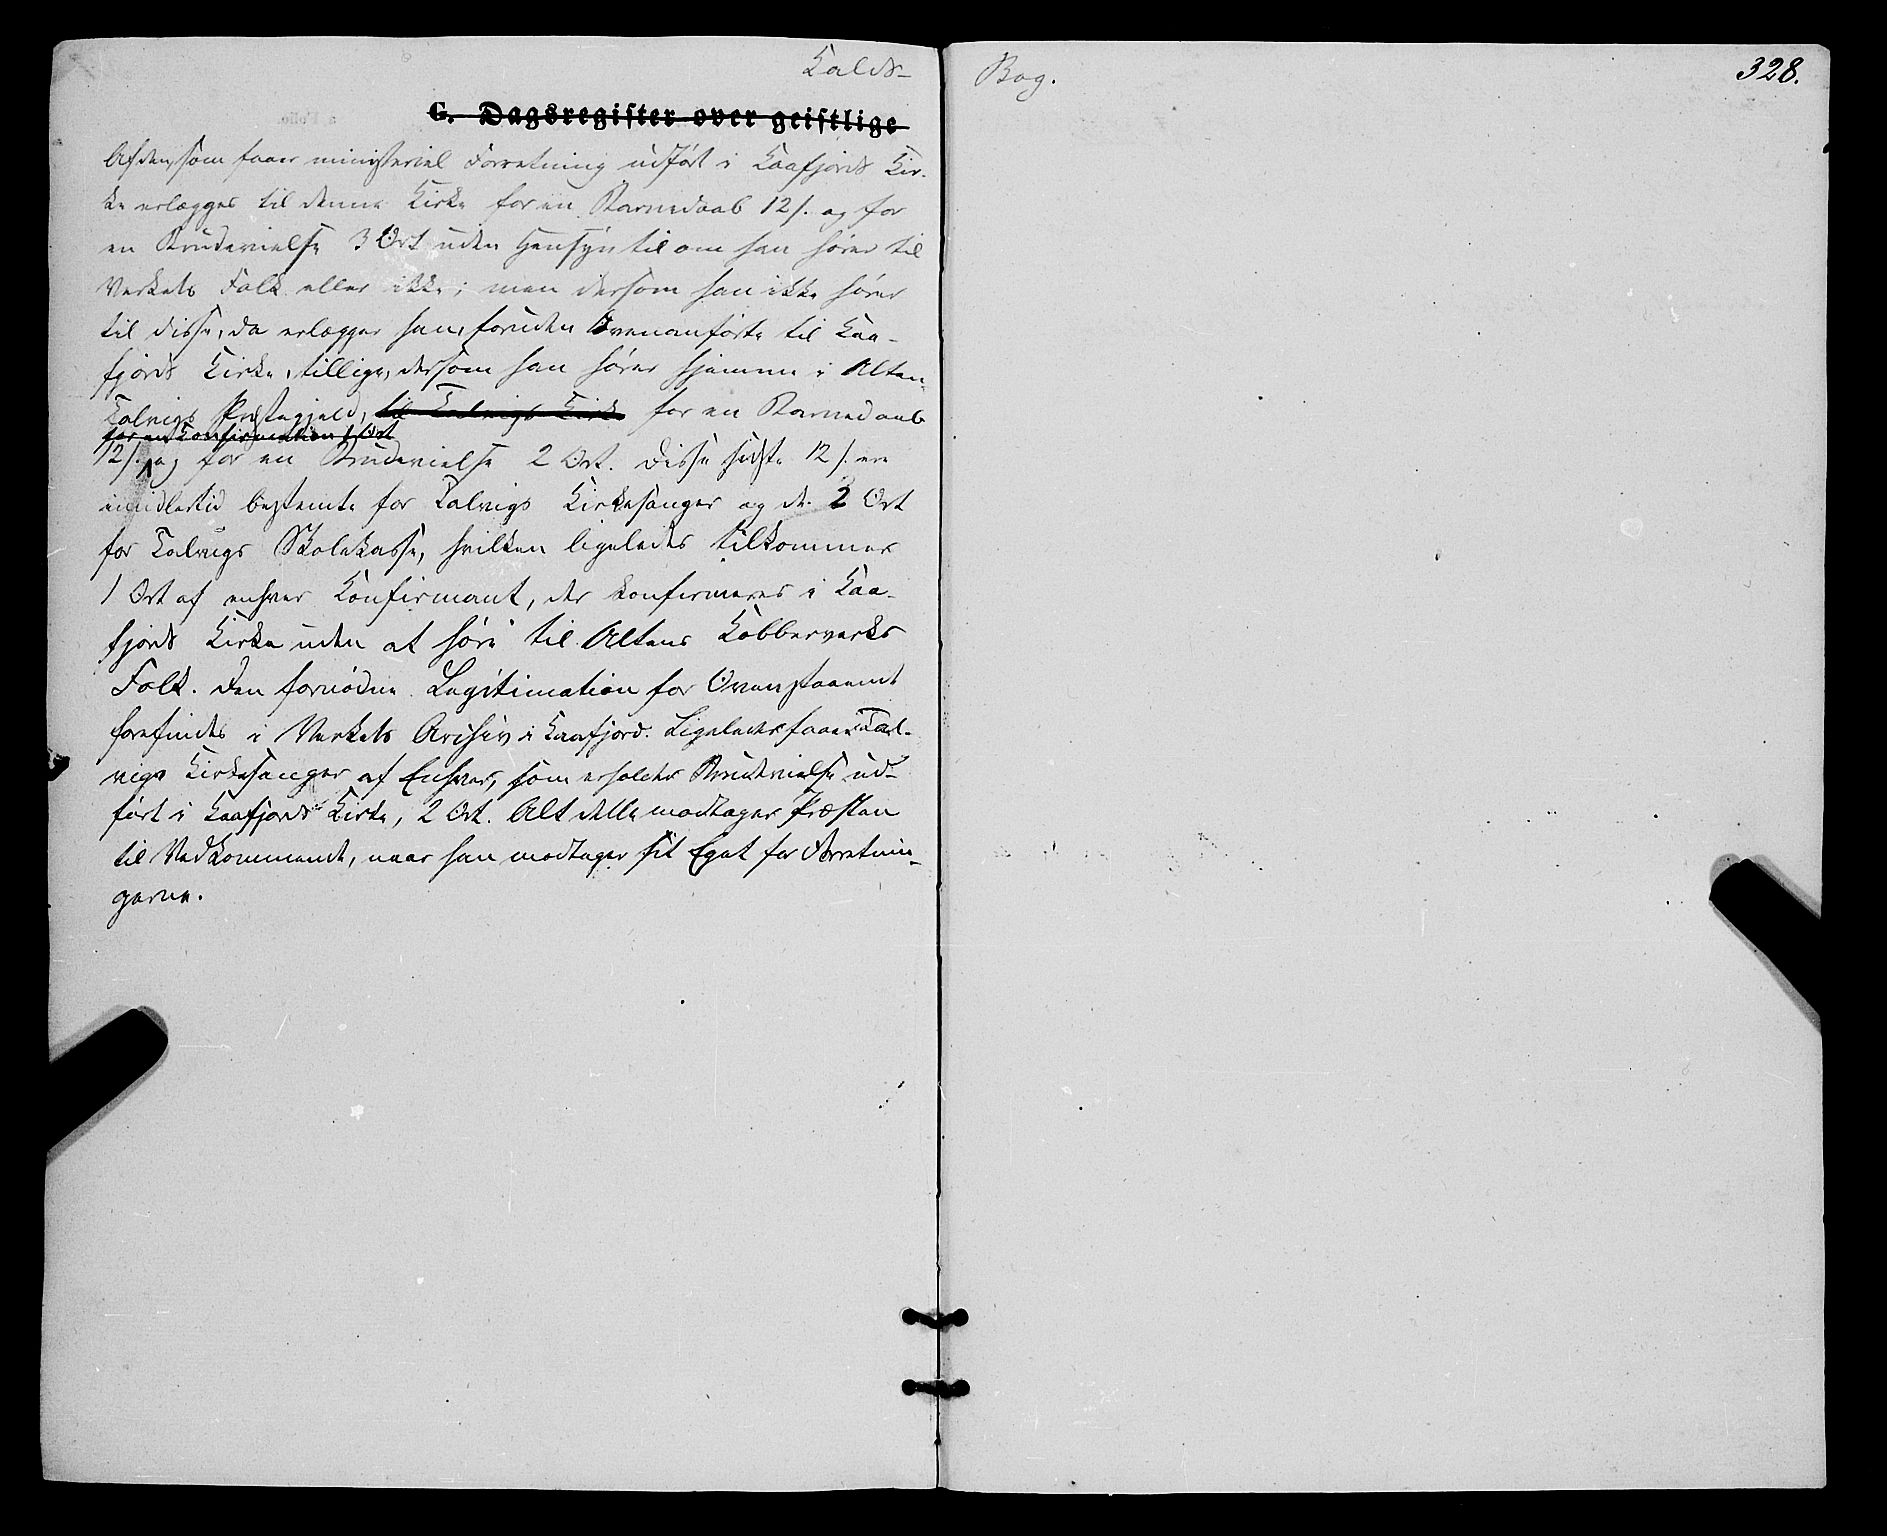 Kalds-
Bog.
328.
G. Dagsregister over geistlige
Af den, som faaer ministeriel Forretning udført i Kaafjords Kir-
ke erlægges til denne Kirke for en Barnedaab 12 s. og for
en Brudevielse 3 Ort uden Hensyn til om han hører til
Verkets Folk eller ikke; men dersom han ikke hører
til disse, da erlægger han, foruden Ovenanførte til Kaa-
fjords Kirke, tillige, dersom han hører hjemme i Alten-
Talvigs Præstegjeld, til Talvigs Kirke for en Barnedaab
for en Confirmation 1 Ort
12 s. og for en Brudevielse 2 Ort. Disse sidste 12 s. ere
imidlertid bestemte for Talvigs Kirkesanger og de 2 Ort
for Talvigs Skolekasse, hvilken ligeledes tilkommer
1 Ort af enhver Konfirmant, der konfirmeres i Kaa-
fjords Kirke uden at høre til Altens Kobberverks
Folk. Den fornødne Legitimation for Ovenstaaende
forefindes i Verkets Archiv i Kaafjord. Ligeledes faaer Tal-
vigs Kirkesanger af Enhver, som erholder Brudevielse ud-
ført i Kaafjords Kirke, 2 Ort. Alt dette modtager Præsten
til Vedkommende, naar han modtager sit Eget for Forretnin-
gerne.